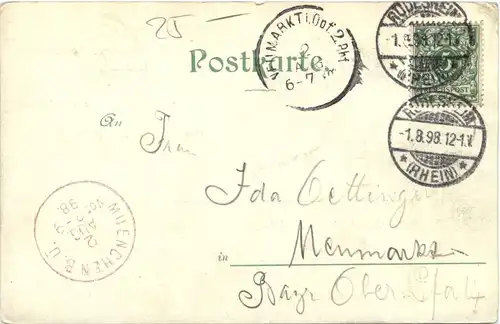 25
Postkarte.
NEUMARKT i. Opf. 2. Pkt
2
6-7
RÜDESHEIM
-1.8.98.12-1.V.
* (RHEIN) *
REICHSPOST
RÜDESHEIM
-1.8.98.12-1.V.
* (RHEIN) *
An Frau
Ida Oettinger
in Neumarkt
Bayr Ober Pfalz
MUENCHEN B.U.
AUG
98